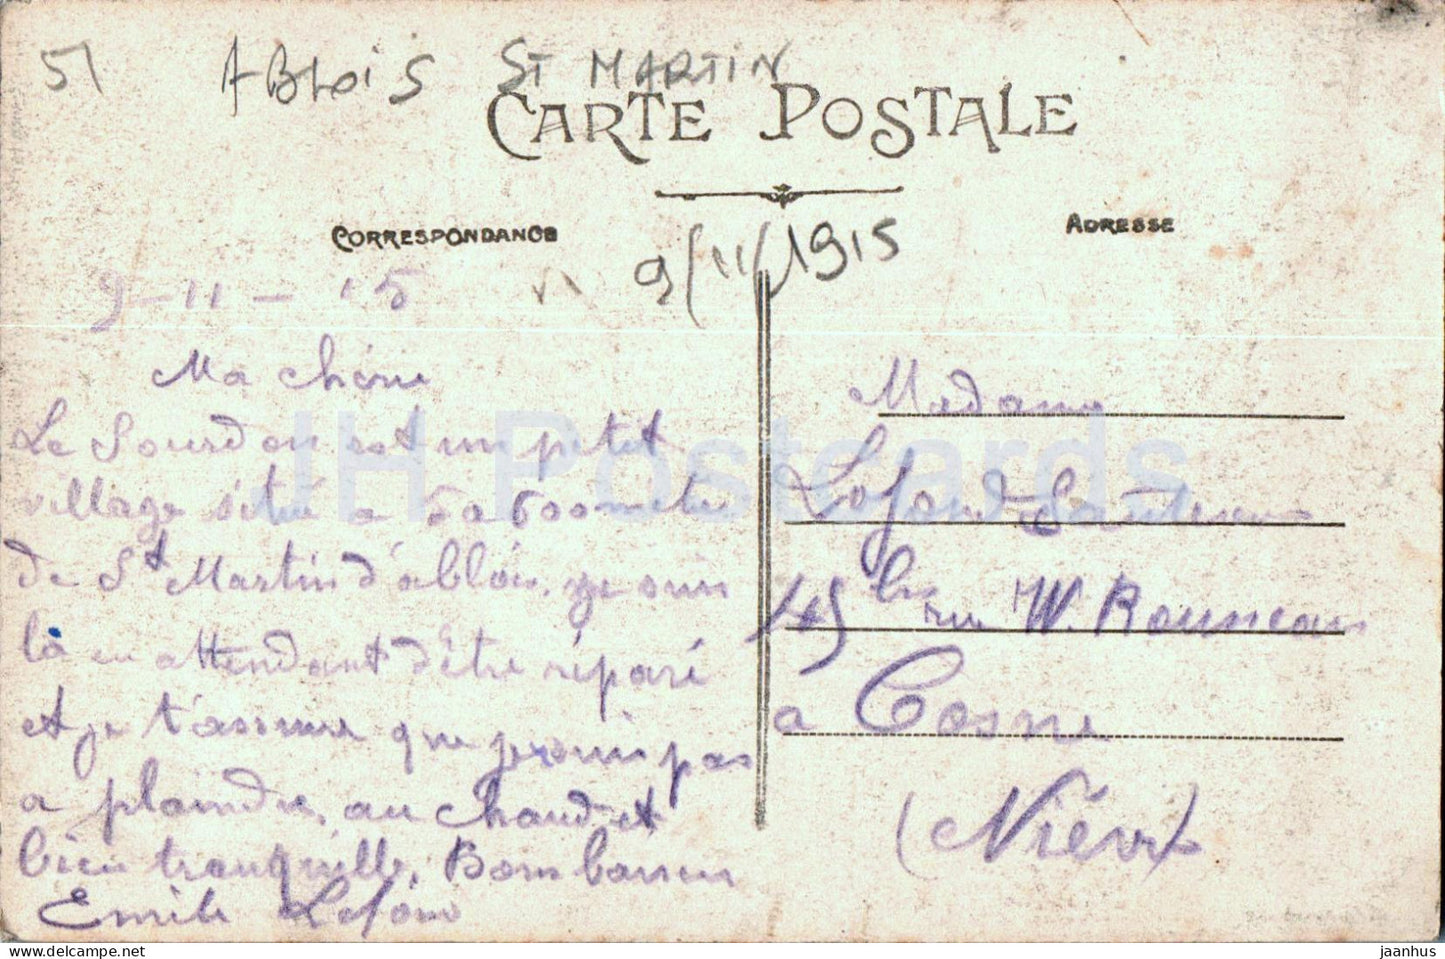 51 ABLOIS ST MARTIN
CARTE POSTALE
CORRESPONDANCE
ADRESSE
9/11/1915
9-11-15
Ma chérie
Le Sourdon est un petit
village situé a 5 a 600 metres
de St Martin d'ablois. je suis
là en attendant d'être réparé
et je t'assure que je suis pas
a plaindre, au chaud et
bien tranquille. Bons baisers
Emile
Madame
145 bis rue W. Rousseau
a Cosne
(Nièvre)
JH Postcards
jaanhus